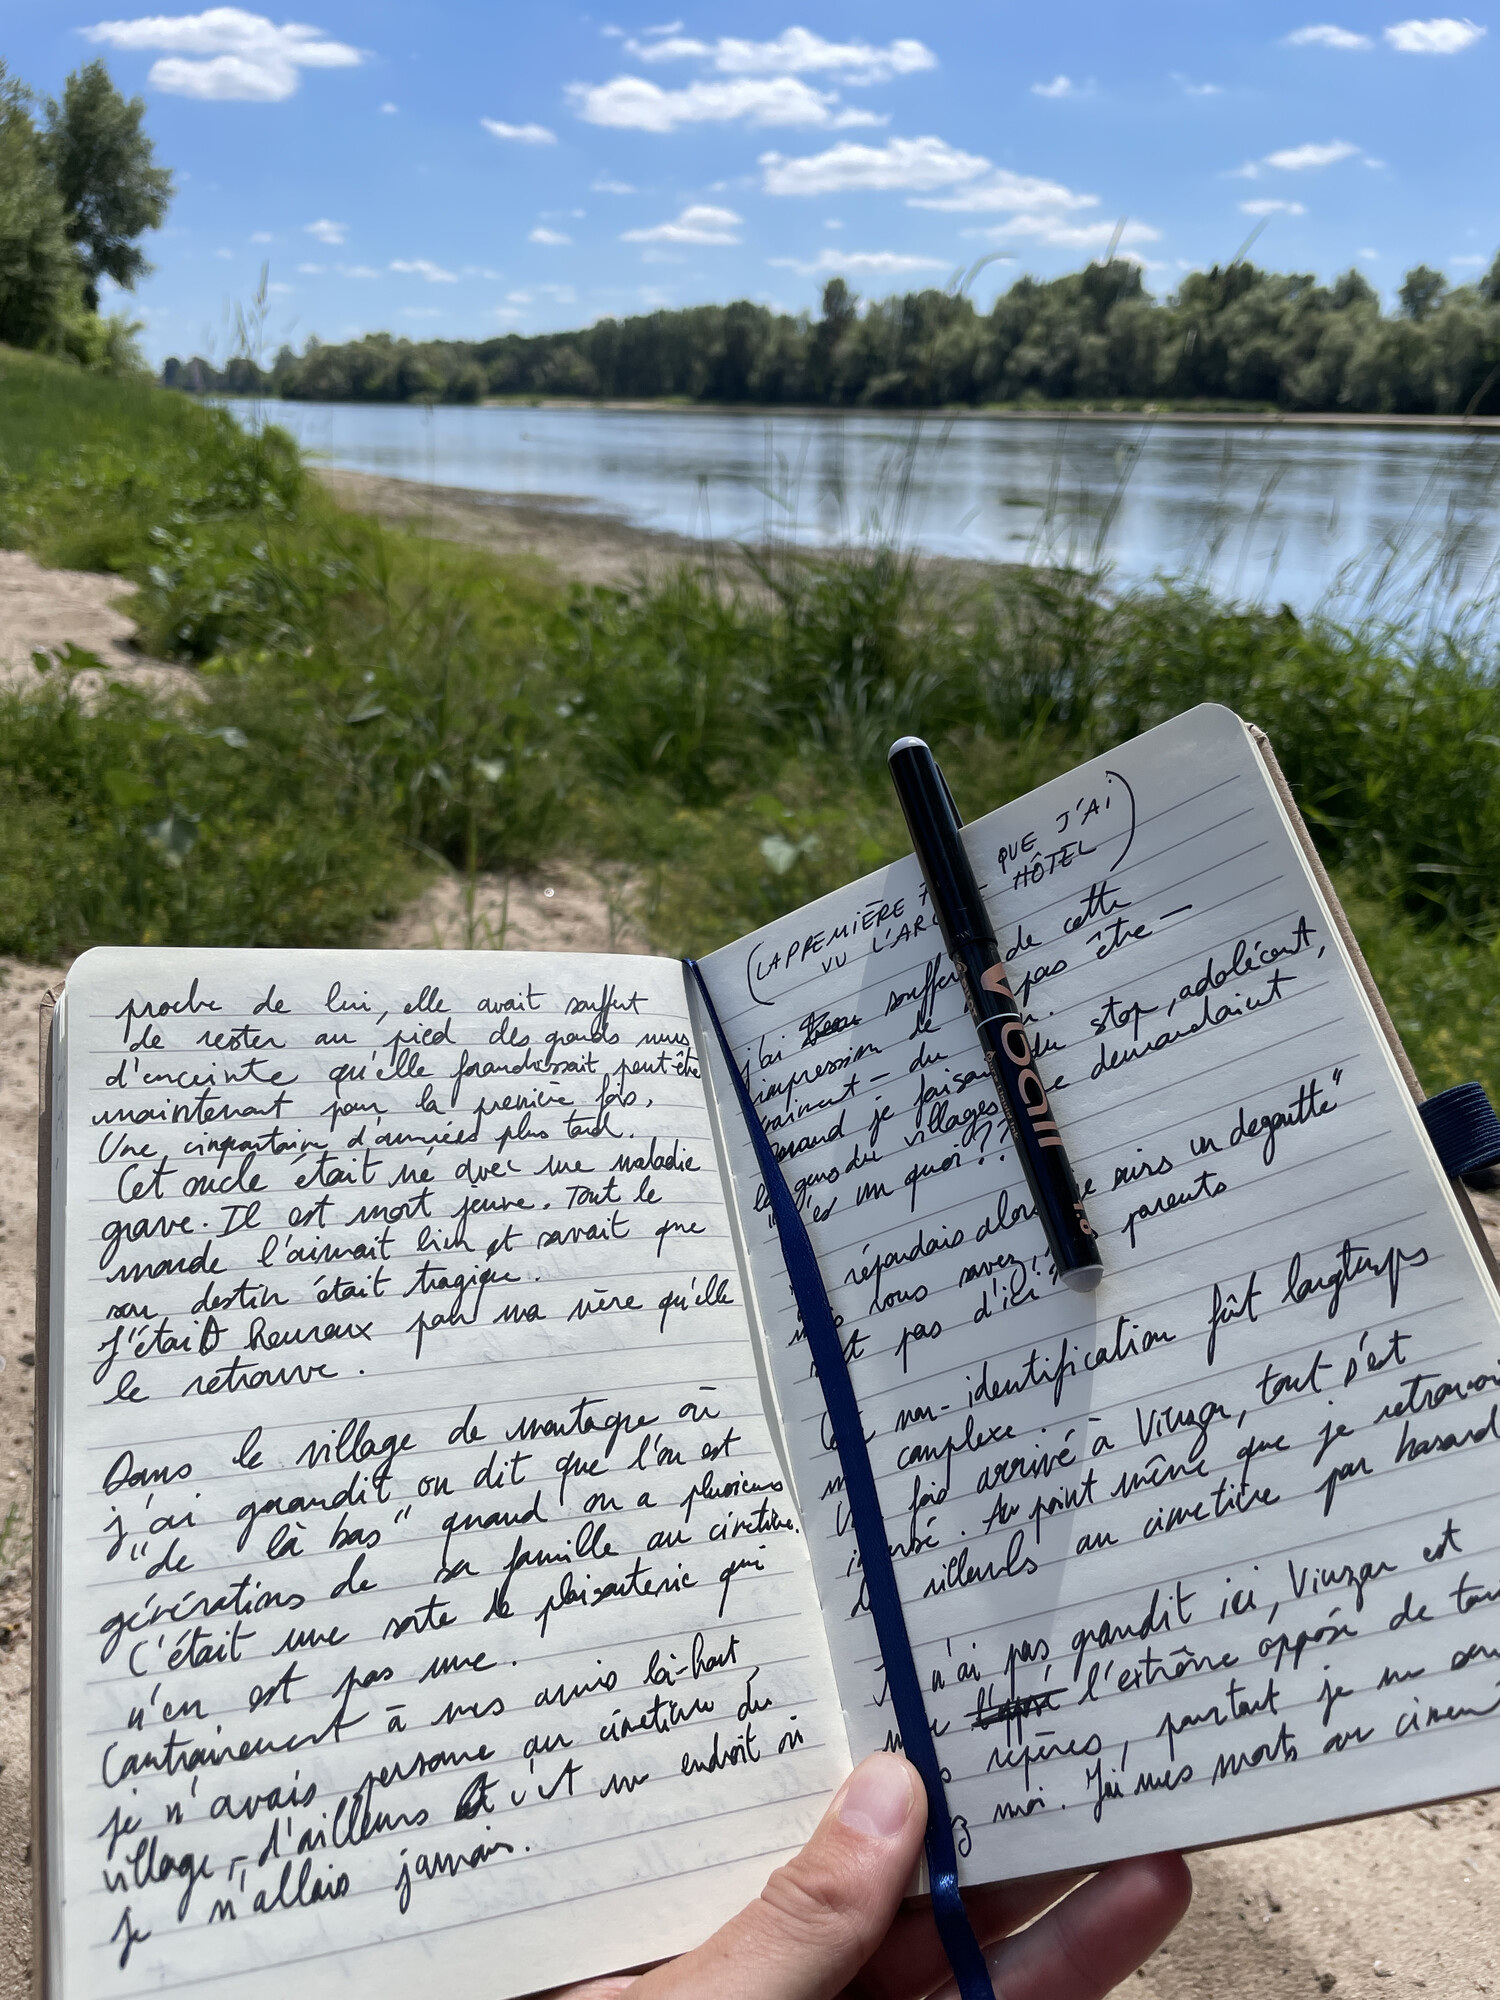 proche de lui, elle avait souffert
de rester au pied des grands murs
d'enceinte qu'elle franchissait peut-être
maintenant pour la première fois,
Une cinquantaine d'années plus tard.
Cet oncle était né avec une maladie
grave. Il est mort jeune. Tout le
monde l'aimait bien et savait que
son destin était tragique.
J'étais heureux pour ma mère qu'elle
le retrouve.
Dans le village de montagne où
j'ai grandit on dit que l'on est
"de là bas" quand on a plusieurs
générations de sa famille au cimetière.
C'était une sorte de plaisanterie qui
n'en est pas une.
Contrairement à mes amis là-haut,
je n'avais personne au cimetière du
village, d'ailleurs c'est un endroit où
je n'allais jamais.
(LA PREMIÈRE QUE J'AI
VU L'ARC HÔTEL)
j'ai souffert de cette
impression de pas être —
vraiment — du
quand je faisais du stop, adolécent,
les gens du villages me demandaient
"t'es un quoi??
répondais alors je suis un degautte"
mais vous savez, parents
pas d'ici
non-identification fût longtemps
complexe.
fois arrivé à Vinzar, tout s'est
inversé. Au point même que je retrouvais
tilleuls au cimetière par hasard
n'ai pas grandit ici, Vinzar est
l'extrême opposé de
repères, pourtant je me
moi. J'ai mes morts au
V ball